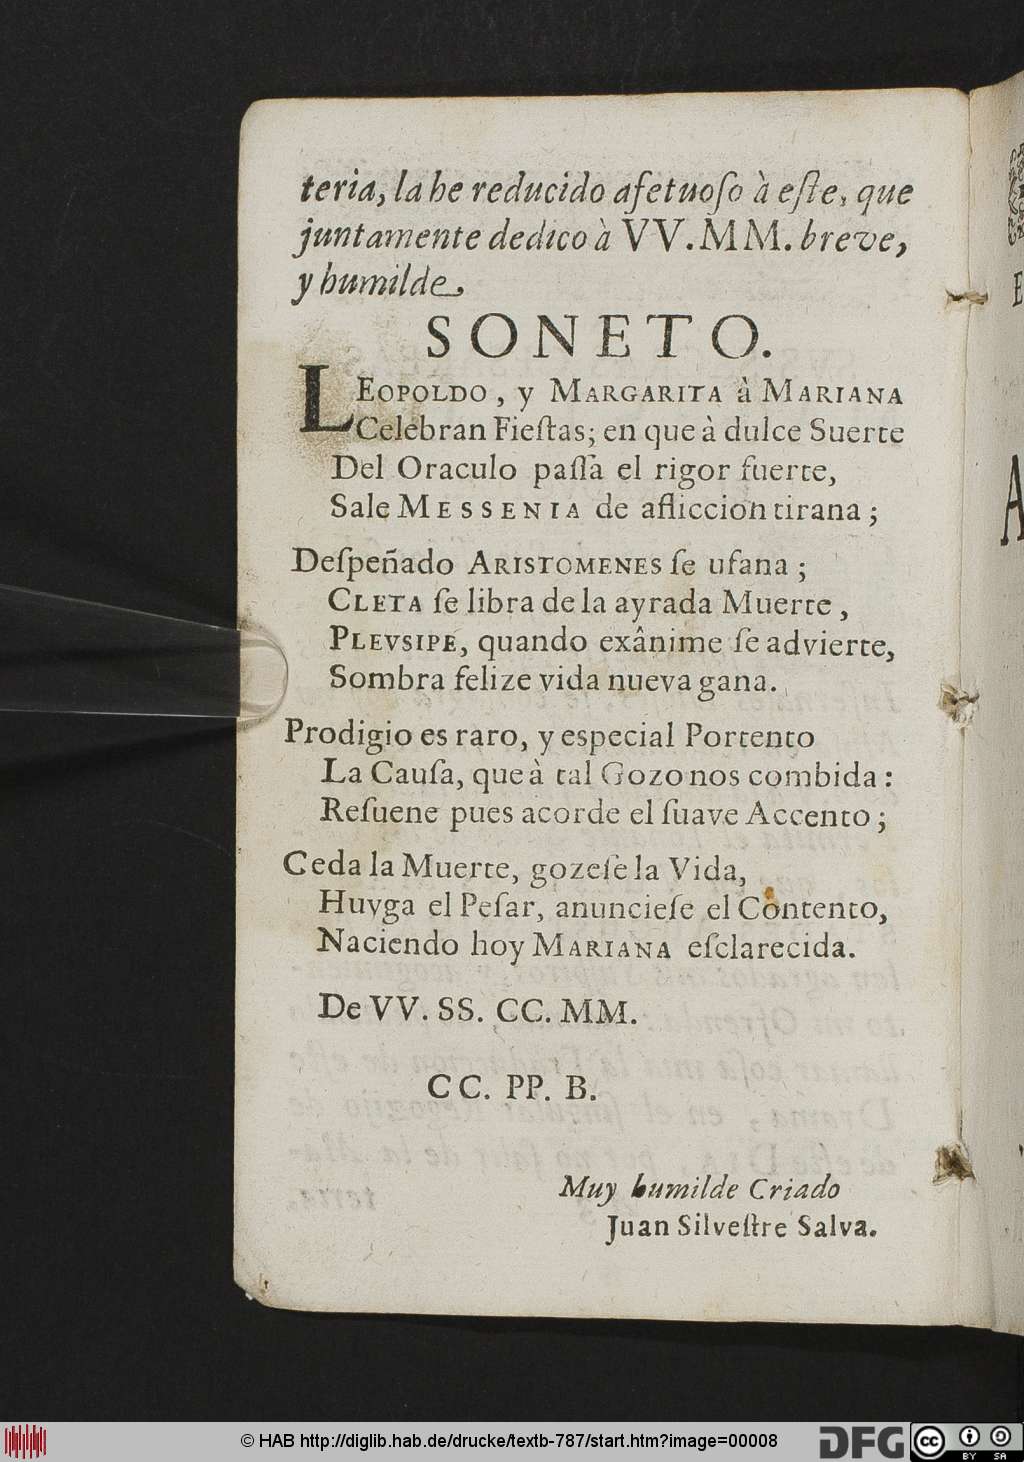 teria, la he reducido afetuoſo à eſte, que
juntamente dedico à VV. MM. breve,
y humilde
SONETO.
LEOPOLDO, y MARGARITA à MARIANA
Celebran Fieſtas; en que à dulce Suerte
Del Oraculo paſſa el rigor fuerte,
Sale MESSENIA de afliccion tirana;
Deſpeñado ARISTOMENES ſe ufana;
CLETA ſe libra de la ayrada Muerte,
PLEVSIPE, quando exânime ſe advierte,
Sombra felize vida nueva gana.
Prodigio es raro, y especial Portento
La Cauſa, que à tal Gozo nos combida:
Reſuene pues acorde el ſuave Accento;
Ceda la Muerte, gozeſe la Vida,
Huyga el Peſar, anuncieſe el Contento,
Naciendo hoy MARIANA eſclarecida.
De VV. SS. CC. MM.
CC. PP. B.
Muy humilde Criado
Juan Silveſtre Salva.
© HAB http://diglib.hab.de/drucke/textb-787/start.htm?image=00008
DFG
cc BY SA